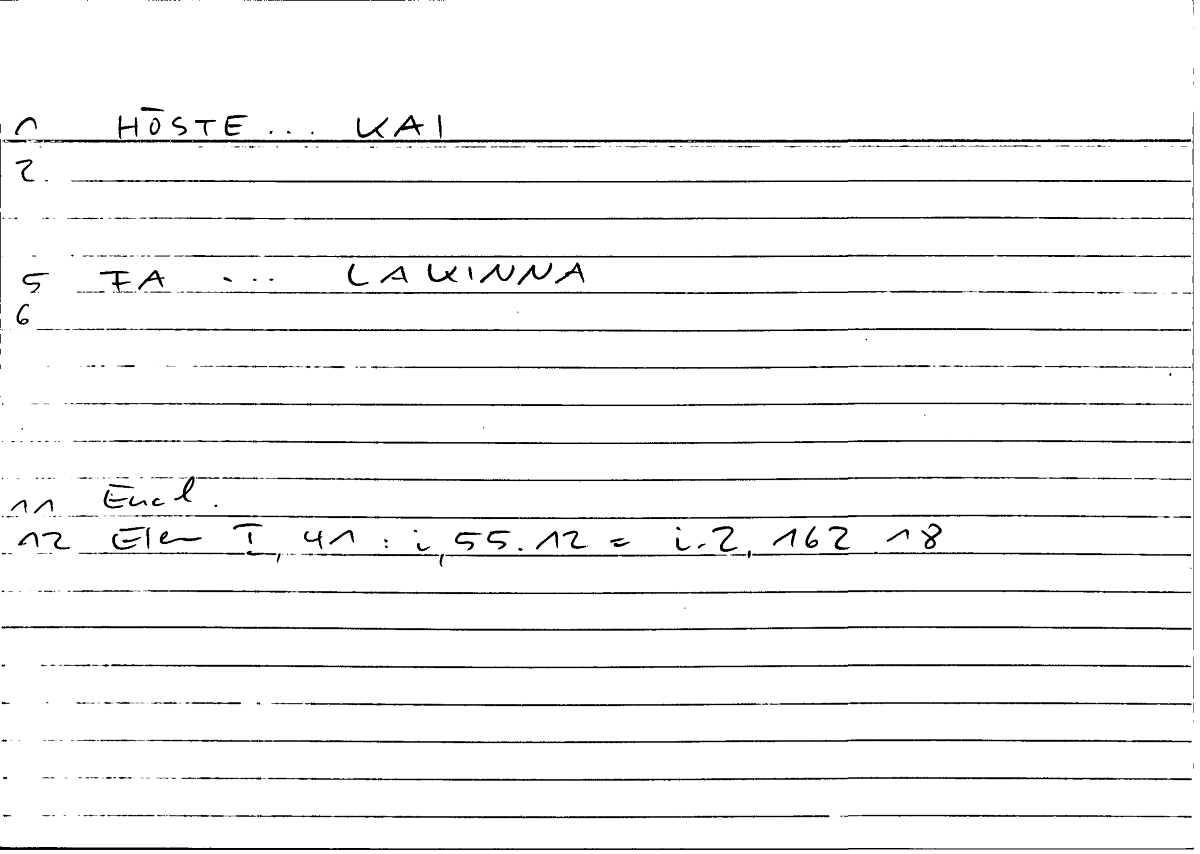 1 HŌSTE ... KAI
2.
5 FA ... LAKINNA
6
11 Eucl.
12 Elem I, 41 : i, 55.12 = i.2, 162 18